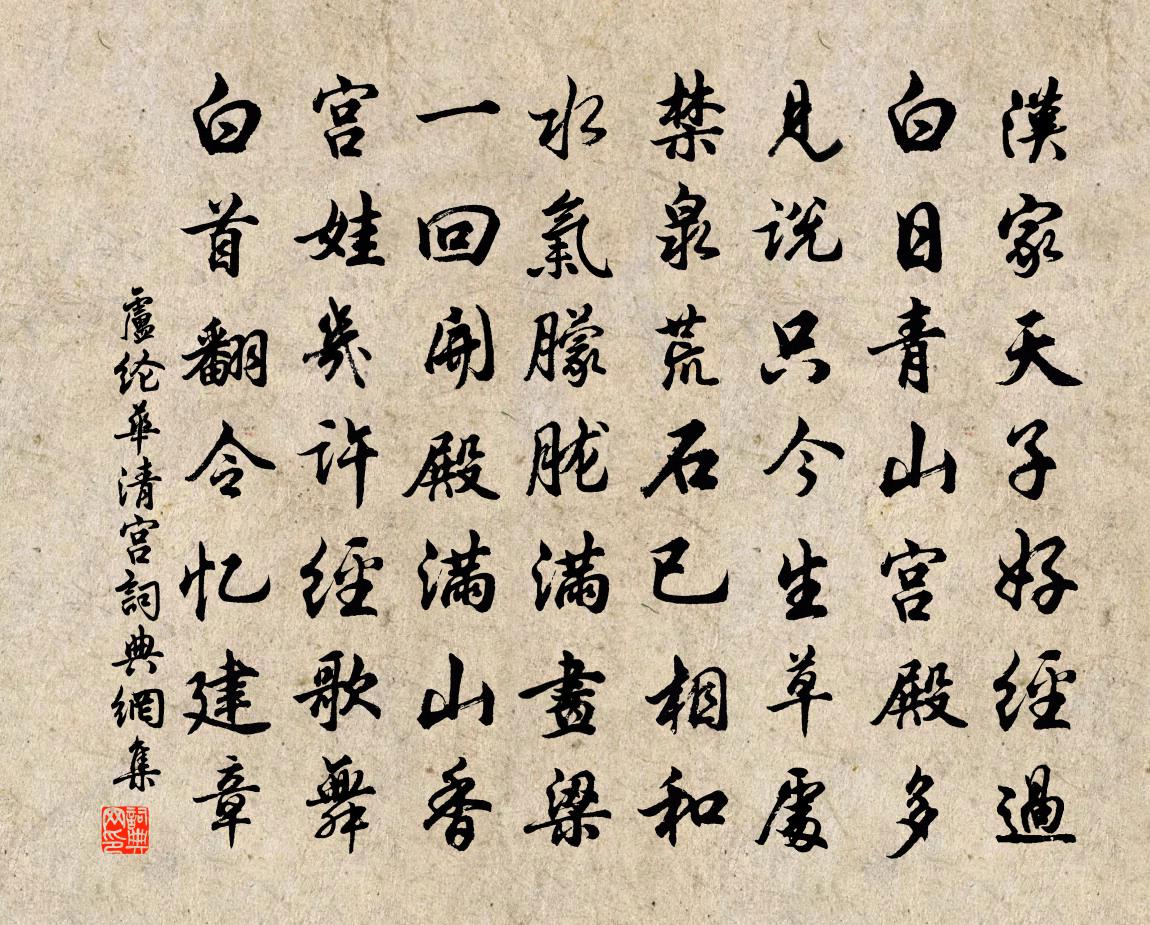 漢家天子好經過
白日青山宮殿多
見说只今生草處
禁泉荒石已相和
水氣朦胧滿畫梁
一回開殿滿山香
宮娃幾許經歌舞
白首翻令忆建章
盧纶華清宮詞典網集
詞典网印